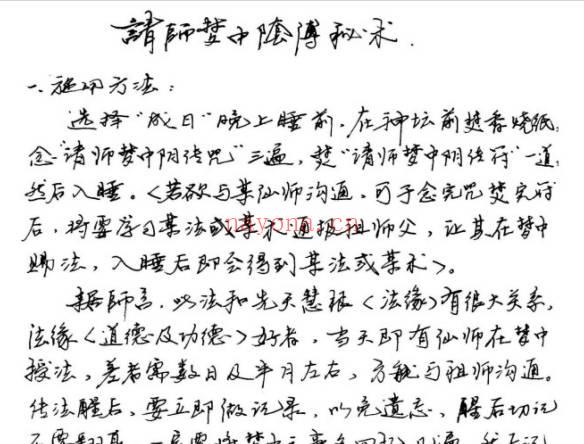 請師梦中陰傳秘术.
一.施用方法：
选择"成日"晚上睡前，在神坛前焚香烧纸，
念"请师梦中阴传咒"三遍，焚"请师梦中阴传符"一道，
然后入睡。<若欲与某仙师沟通，可于念完咒焚完符
后，将要学习某法或某术通报祖师父，让其在梦中
赐法，入睡后即会得到某法或某术>。
nayona.cn
来据師言，此法和先天慧根<法缘>有很大关系，
法缘<道德及功德>好者，当天即有仙师在梦中
授法，差者需数日及半月左右，方能与祖师沟通。
传法醒后，要立即做记录，以免遗忘，醒后切记